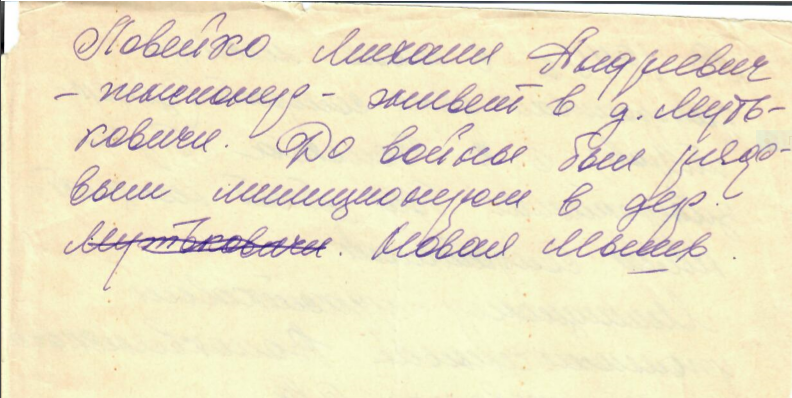 Повейко Михаил Андреевич
- пенсионер - живет в д. Муть-
ковичи. До войны был рядо-
вым милиционером в дер.
Мутьковичи. Новая Мышь.